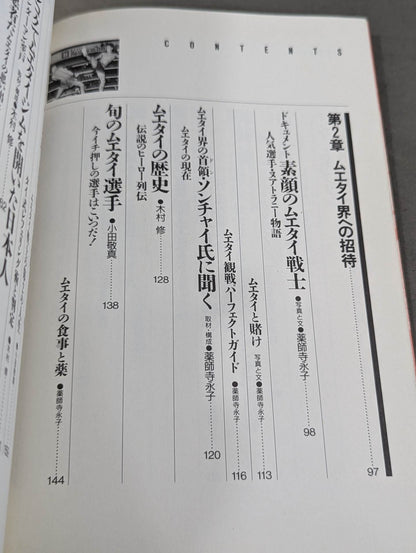 CONTENTS
第2章 ムエタイ界への招待 97
ドキュメント 素顔のムエタイ戦士 ●写真と文●薬師寺永子 98
人気選手・ヌアトラニー物語
ムエタイと賭け 写真と文●薬師寺永子 113
ムエタイ観戦パーフェクトガイド ●薬師寺永子 116
ムエタイ界の首領・ソンチャイ氏に聞く 取材・構成●薬師寺永子 120
ムエタイの現在
ムエタイの歴史 ●木村 修 128
伝説のヒーロー列伝
旬のムエタイ選手 ●小田敬真 138
今イチ押しの選手はこいつだ!
ムエタイの食事と薬 ●薬師寺永子 144